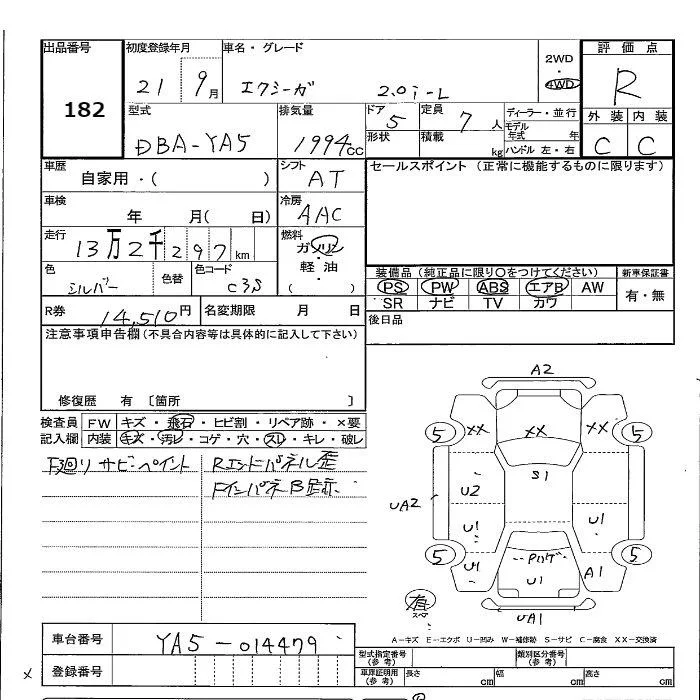 出品番号 初度登録年月 車名・グレード 評価点
182
21 9月 エクシーガ 2.0i-L
2WD
・
4WD
R
型式 排気量 ドア 定員 ディーラー・並行 外装 内装
DBA-YA5 1994cc 5 7人 モデル年式 年 C C
形状 積載 kg ハンドル 左・右
車歴 シフト セールスポイント (正常に機能するものに限ります)
自家用・( ) AT
車検 冷房
年 月( 日) AAC
走行 燃料
13万2千297km ガソリン
軽・油
( )
色 色替 色コード
シルバー C3S
装備品 (純正品に限り〇をつけてください) 新車保証書
PS PW ABS エアB AW 有・無
SR ナビ TV カワ
R券 14,510円 名変期限 月 日
後日品
注意事項申告欄(不具合内容等は具体的に記入して下さい)
修復歴 有 〔箇所 〕
検査員 FW キズ・飛石・ヒビ割・リペア跡・×要
記入欄 内装 キズ・汚レ・コゲ・穴・スレ・キレ・破レ
下廻りサビ・ペイント RエンドパネルB歪
FインパネB跡
A2
5 XX XX XX 5
S1
U2
UA2
U1 U1
5 U1 Pハゲ A1 5
U1
有
スペ
UA1
A-キズ E-エクボ U-凹み W-補修跡 S-サビ C-腐食 XX-交換済
車台番号 YA5-014479
登録番号
型式指定番号(参考) 類別区分番号(参考)
車庫証明用(参考) 長さ cm 幅 cm 高さ cm
×